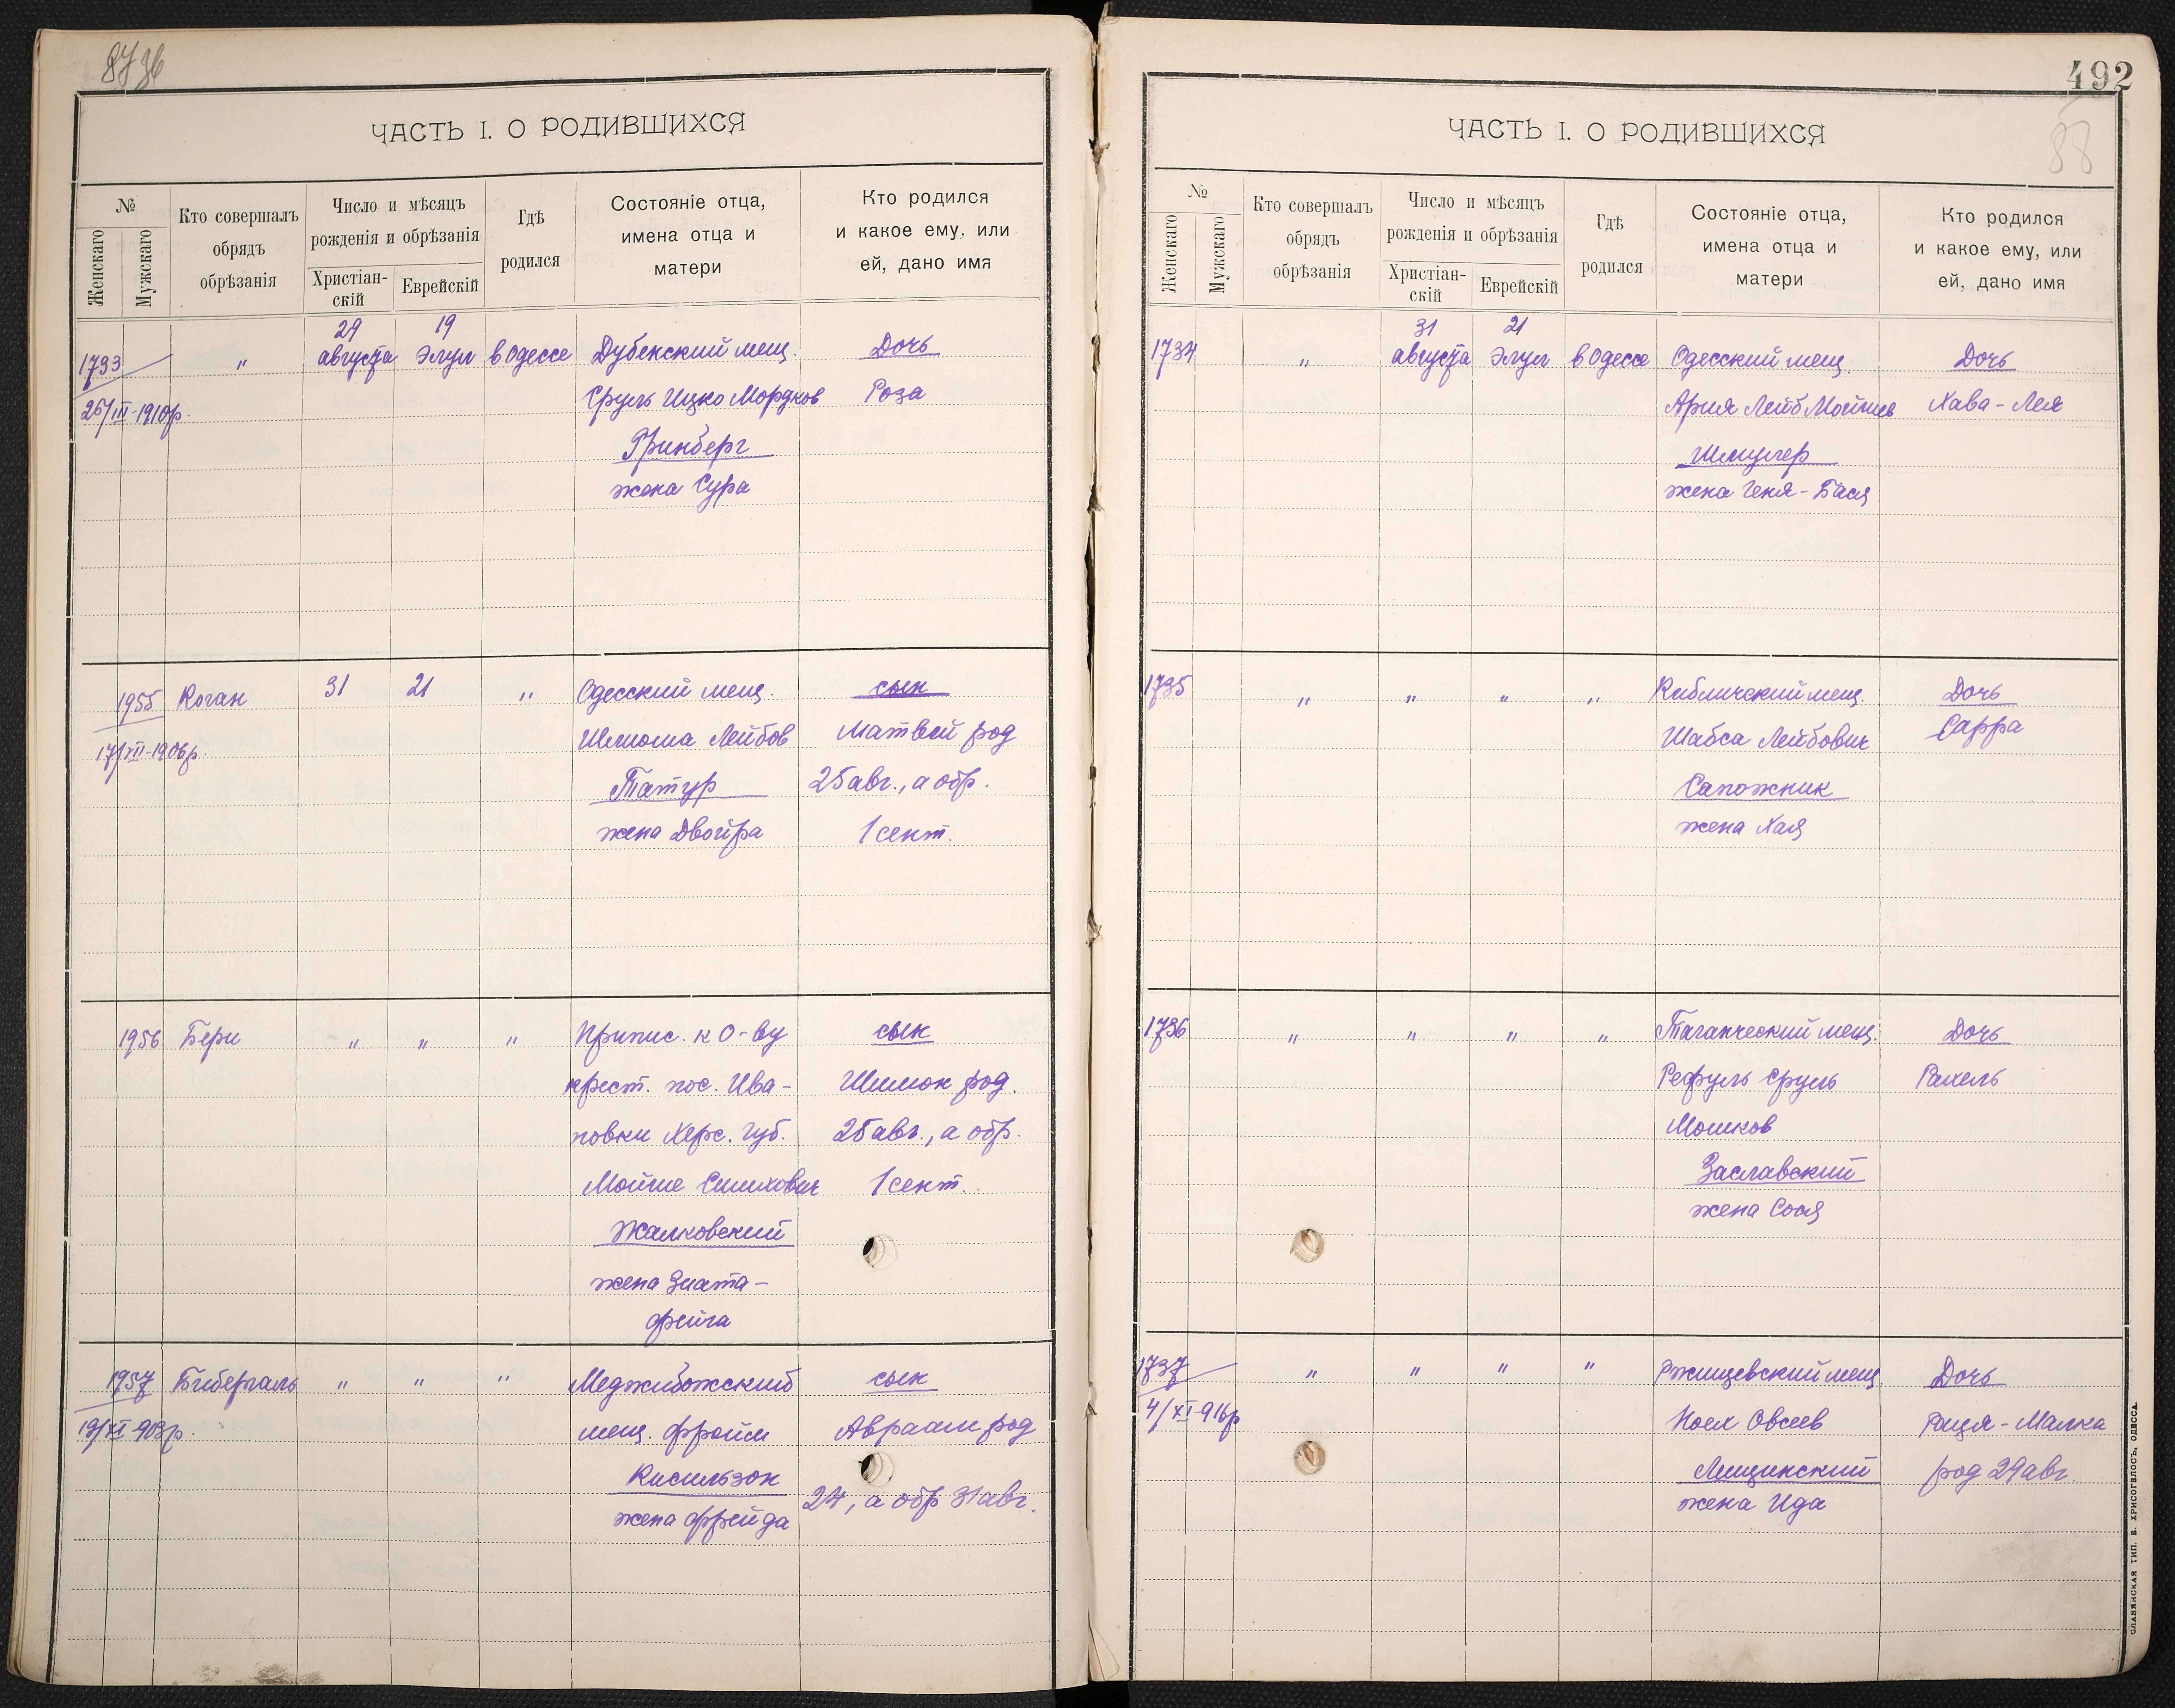 ЧАСТЬ I. О РОДИВШИХСЯ
№
Женскаго
Мужскаго
Кто совершалъ
обрядъ
обрѣзанія
Число и мѣсяцъ
рожденія и обрѣзанія
Христіан-
скій
Еврейскій
Гдѣ
родился
Состояніе отца,
имена отца и
матери
Кто родился
и какое ему, или
ей, дано имя
29 19
1733 " августа Элул в Одессе Дубенский мещ. Дочь
26/III-1910р. Сруль Ицко Мордков Роза
Гринберг
жена Сура
1955 Коган 31 21 " Одесский мещ. сын
17/VII-1906р. Шлиома Лейбов Матвей род
Татур 25 авг., а обр.
жена Двойра 1 сент.
1956 Бери " " " Припис. к о-ву сын
крест. пос. Ива- Шимон род.
новки Херс. губ. 25 авг., а обр.
Мойше Симхович 1 сент.
Жалковский
жена Злата-
Фейга
1957 Бибергаль " " " Меджибожский сын
19/XI-908р. мещ. Фроим Авраам род
Кисильзон
24, а обр 31 авг.
жена Фрейда
492
88
ЧАСТЬ I. О РОДИВШИХСЯ
№
Женскаго
Мужскаго
Кто совершалъ
обрядъ
обрѣзанія
Число и мѣсяцъ
рожденія и обрѣзанія
Христіан-
скій
Еврейскій
Гдѣ
родился
Состояніе отца,
имена отца и
матери
Кто родился
и какое ему, или
ей, дано имя
31 21
1734 " августа Элул в Одессе Одесский мещ. Дочь
Ария Лейб Мойшев Хава-Лея
Шмулер
жена Геня-Бася
1735 " " " " Кибличский мещ. Дочь
Шабса Лейбович Сарра
Сапожник
жена Хая
1736 " " " " Таганческий мещ. Дочь
Рефуль Сруль Рахель
Мошков
Заславский
жена Сося
1737 " " " " Ржищевский мещ. Дочь
4/XI-916р Иоел Овсеев Рация-Малка
Лещинский род 29 авг.
жена Ида
СЛАВЯНСКАЯ ТИП. Е. ХРИСОГЕЛОСЪ, ОДЕССА.